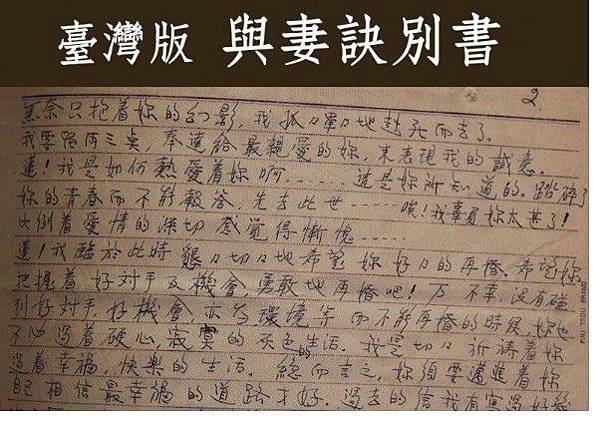 臺灣版 與妻訣別書
2.
無奈只抱着妳的幻影,我孤々單々地赴死而去了。
我要留兩三点,奉達給最親愛的妳,來表現我的誠意。
蓮!我是如何熱愛着妳啊......這是妳所知道的。踏碎了
妳的青春而不能報答,先去此世......唉!我辜負妳太甚了!
比例着愛情的深切感覺得慚愧.....
蓮!我臨於此時懇々切々地希望妳好々的再婚。希望妳
把握着好対手及機會勇敢地再婚吧!万一不幸,沒有碰
到好対手,好機會,亦為環境等而不能再婚的時候,妳也
不必過着硬心,寂寞的灰色的生活。我是切々祈禱着妳
過着幸福,快樂的生活。總而言之,妳須要邁進着妳
自己相信最幸福的道路才好。過去的信我有寫過好幾